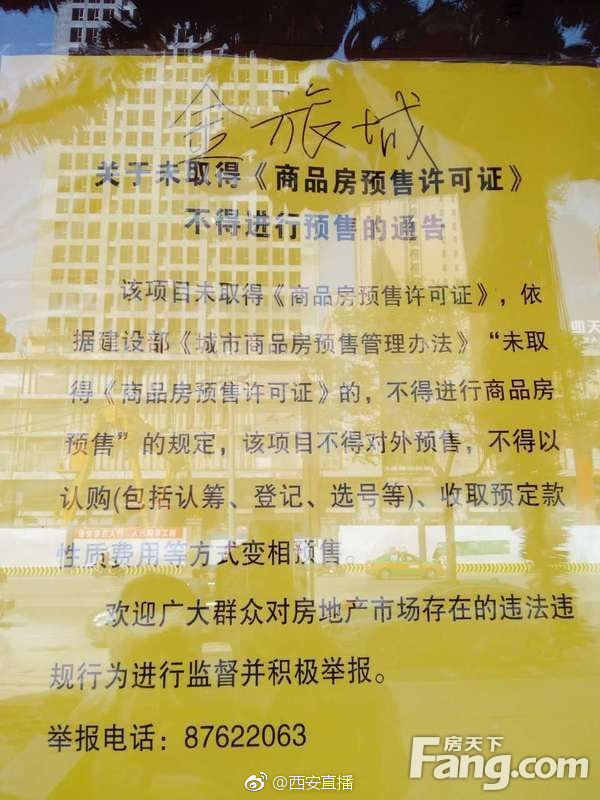 金旅城
关于未取得《商品房预售许可证》
不得进行预售的通告
该项目未取得《商品房预售许可证》，依
据建设部《城市商品房预售管理办法》“未取
得《商品房预售许可证》的，不得进行商品房
预售”的规定，该项目不得对外预售，不得以
认购(包括认筹、登记、选号等)、收取预定款
性质费用等方式变相预售。
欢迎广大群众对房地产市场存在的违法违
规行为进行监督并积极举报。
举报电话：87622063
@西安直播
房天下
Fang.com